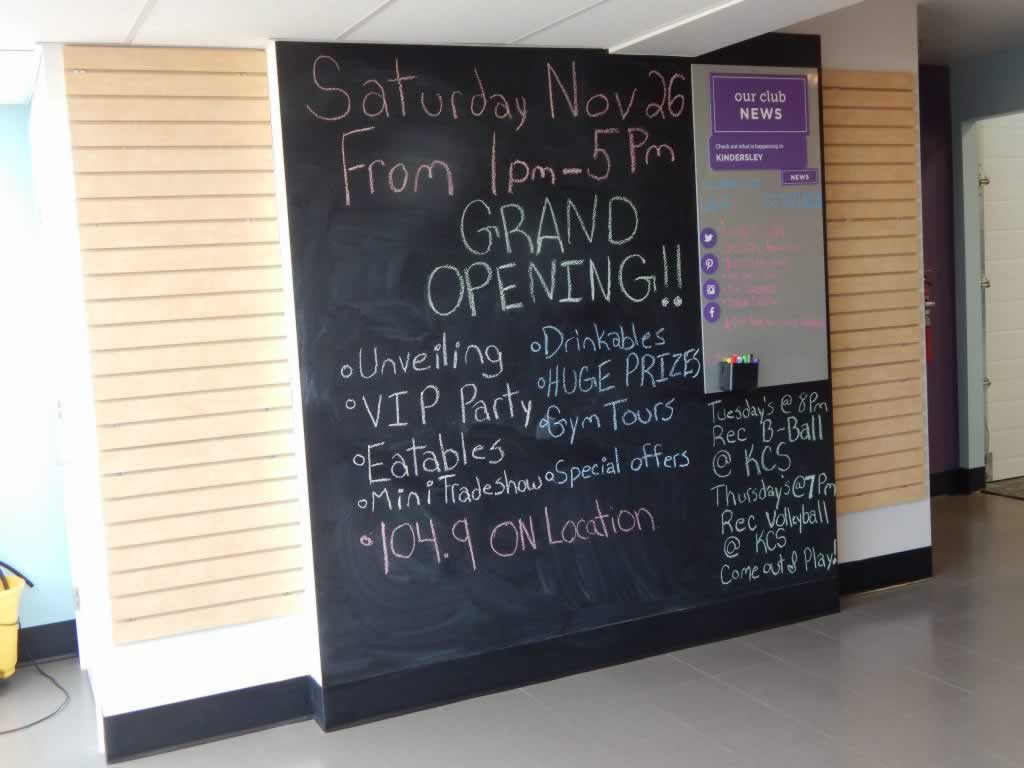 Saturday Nov 26
From 1pm-5Pm
GRAND
OPENING!!
Unveiling
VIP Party
Eatables
Mini Tradeshow
Drinkables
HUGE PRIZES
Gym Tours
Special offers
104.9 ON Location
our club
NEWS
Check out what is happening in
KINDERSLEY
NEWS
Tuesday's @ 8Pm
Rec B-Ball
@ KCS
Thursday's@7Pm
Rec Volleyball
@ KCS
Come out & Play!